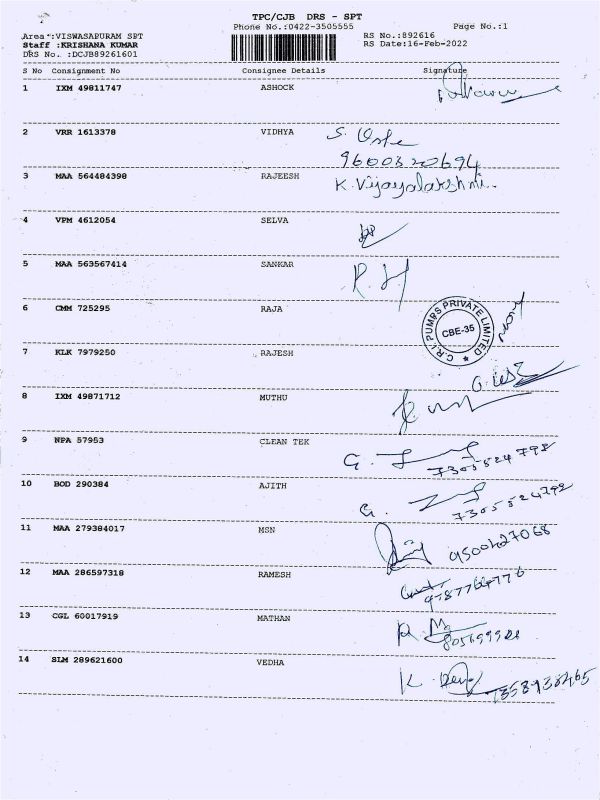 TPC/CJB DRS - SPT
Phone No.:0422-3505555
Page No.:1
Area :VISWASAPURAM SPT
RS No.:892616
Staff :KRISHANA KUMAR
RS Date:16-Feb-2022
DRS No. :DCJB89261601
S No Consignment No Consignee Details Signature
1 IXM 49811747 ASHOCK
2 VRR 1613378 VIDHYA S.
9600320694
3 MAA 564484398 RAJEESH K. Vijayalakshmi.
4 VPM 4612054 SELVA
5 MAA 563567414 SANKAR
6 CMM 725295 RAJA
C.R.I. PUMPS PRIVATE LIMITED
CBE-35
7 KLK 7979250 RAJESH
8 IXM 49871712 MUTHU
9 NPA 57953 CLEAN TEK G.
7305524792
10 BOD 290384 AJITH G.
7305524792
11 MAA 279384017 MSN
12 MAA 286597318 RAMESH
13 CGL 60017919 MATHAN
14 SLM 289621600 VEDHA K.